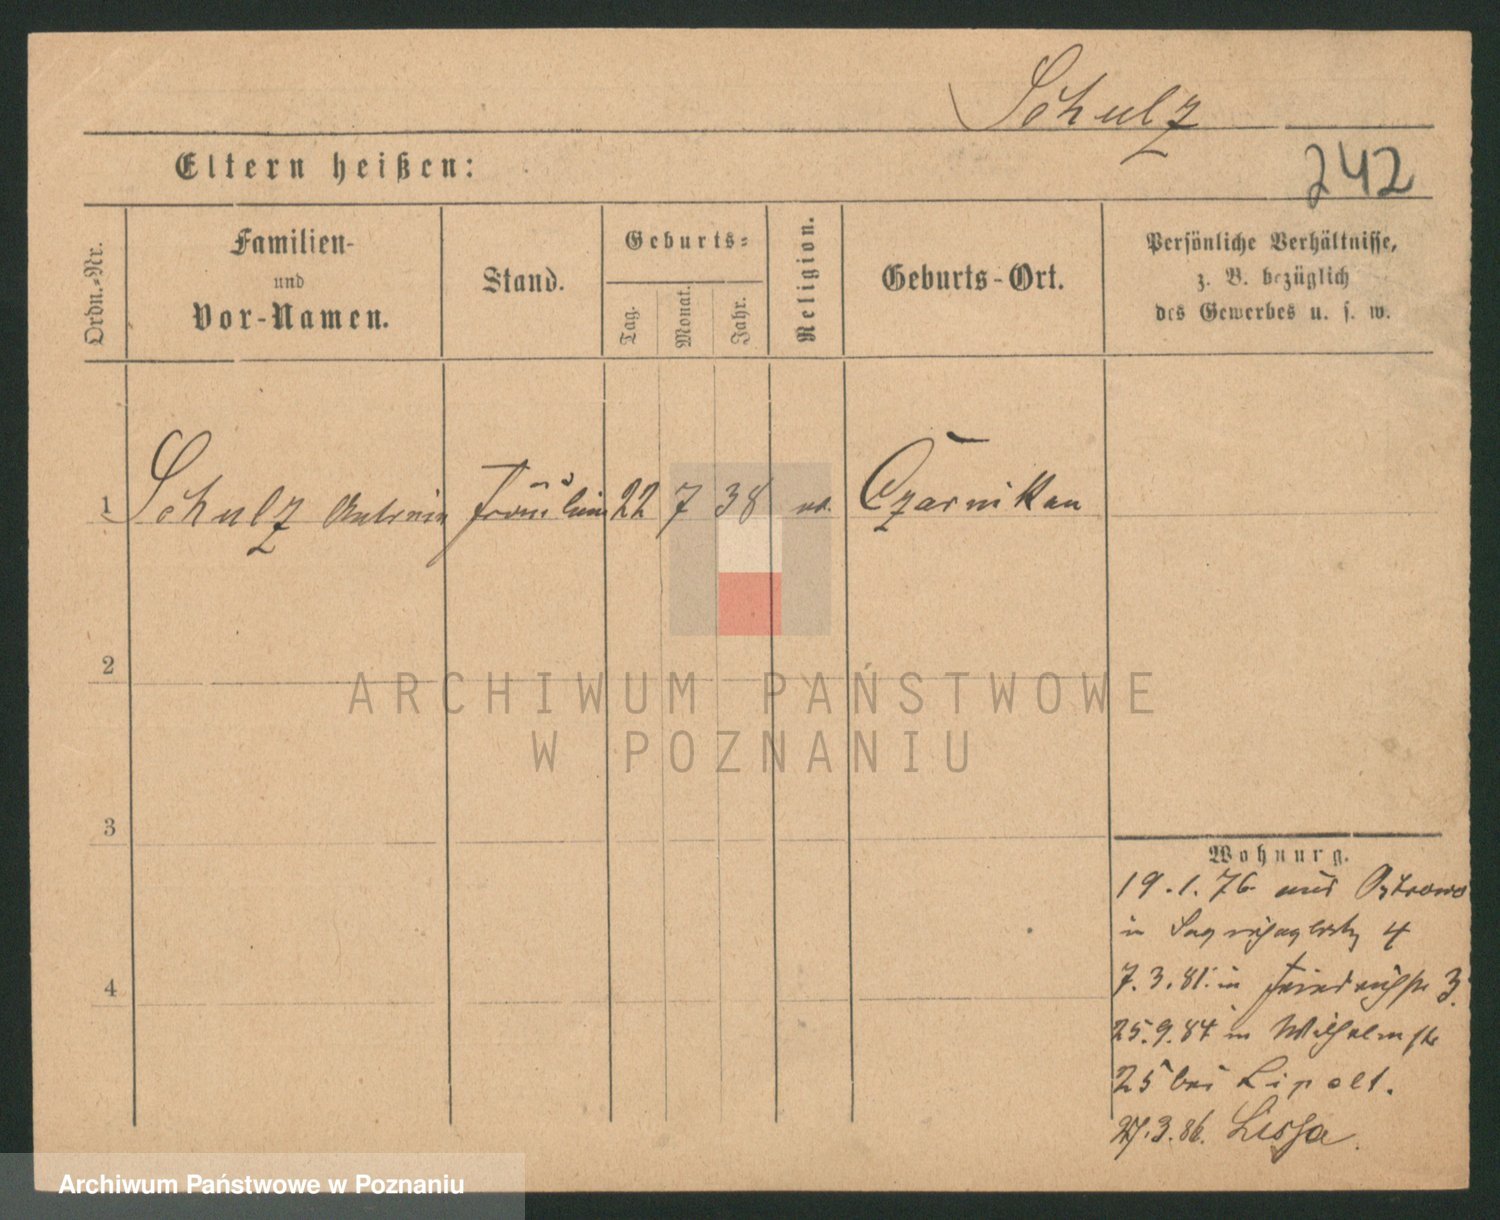 Schulz
Eltern heißen:
242
Ordn.-Nr.
Familien-
und
Vor-Namen.
Stand.
Geburts-
Tag.
Monat.
Jahr.
Religion.
Geburts-Ort.
Persönliche Verhältnisse,
z. B. bezüglich
des Gewerbes u. s. w.
1 Schulz Fräulein 22 7 38 Czarnikau
2
ARCHIWUM PAŃSTWOWE
W POZNANIU
3
Wohnung.
19.1.76 aus Ostrowo
in 4
4
7.3.81 in Friedrichstr 3.
25.9.84 in Wilhelmstr
25 bei Lipolt.
27.3.86. Lissa.
Archiwum Państwowe w Poznaniu